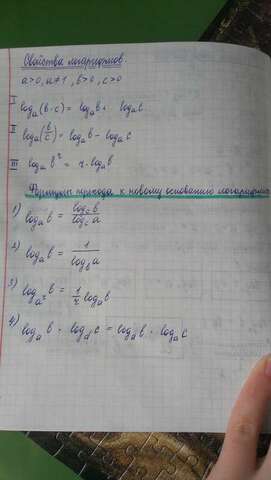 Свойства логарифмов.
a>0, a≠1, b>0, c>0
I log_a(b·c) = log_a b + log_a c
II log_a(b/c) = log_a b - log_a c
III log_a b^r = r·log_a b
Формулы перехода к новому основанию логарифма
1) log_a b = log_c b / log_c a
2) log_a b = 1 / log_b a
3) log_{a^r} b = 1/r log_a b
4) log_a b · log_d c = log_d b · log_a c